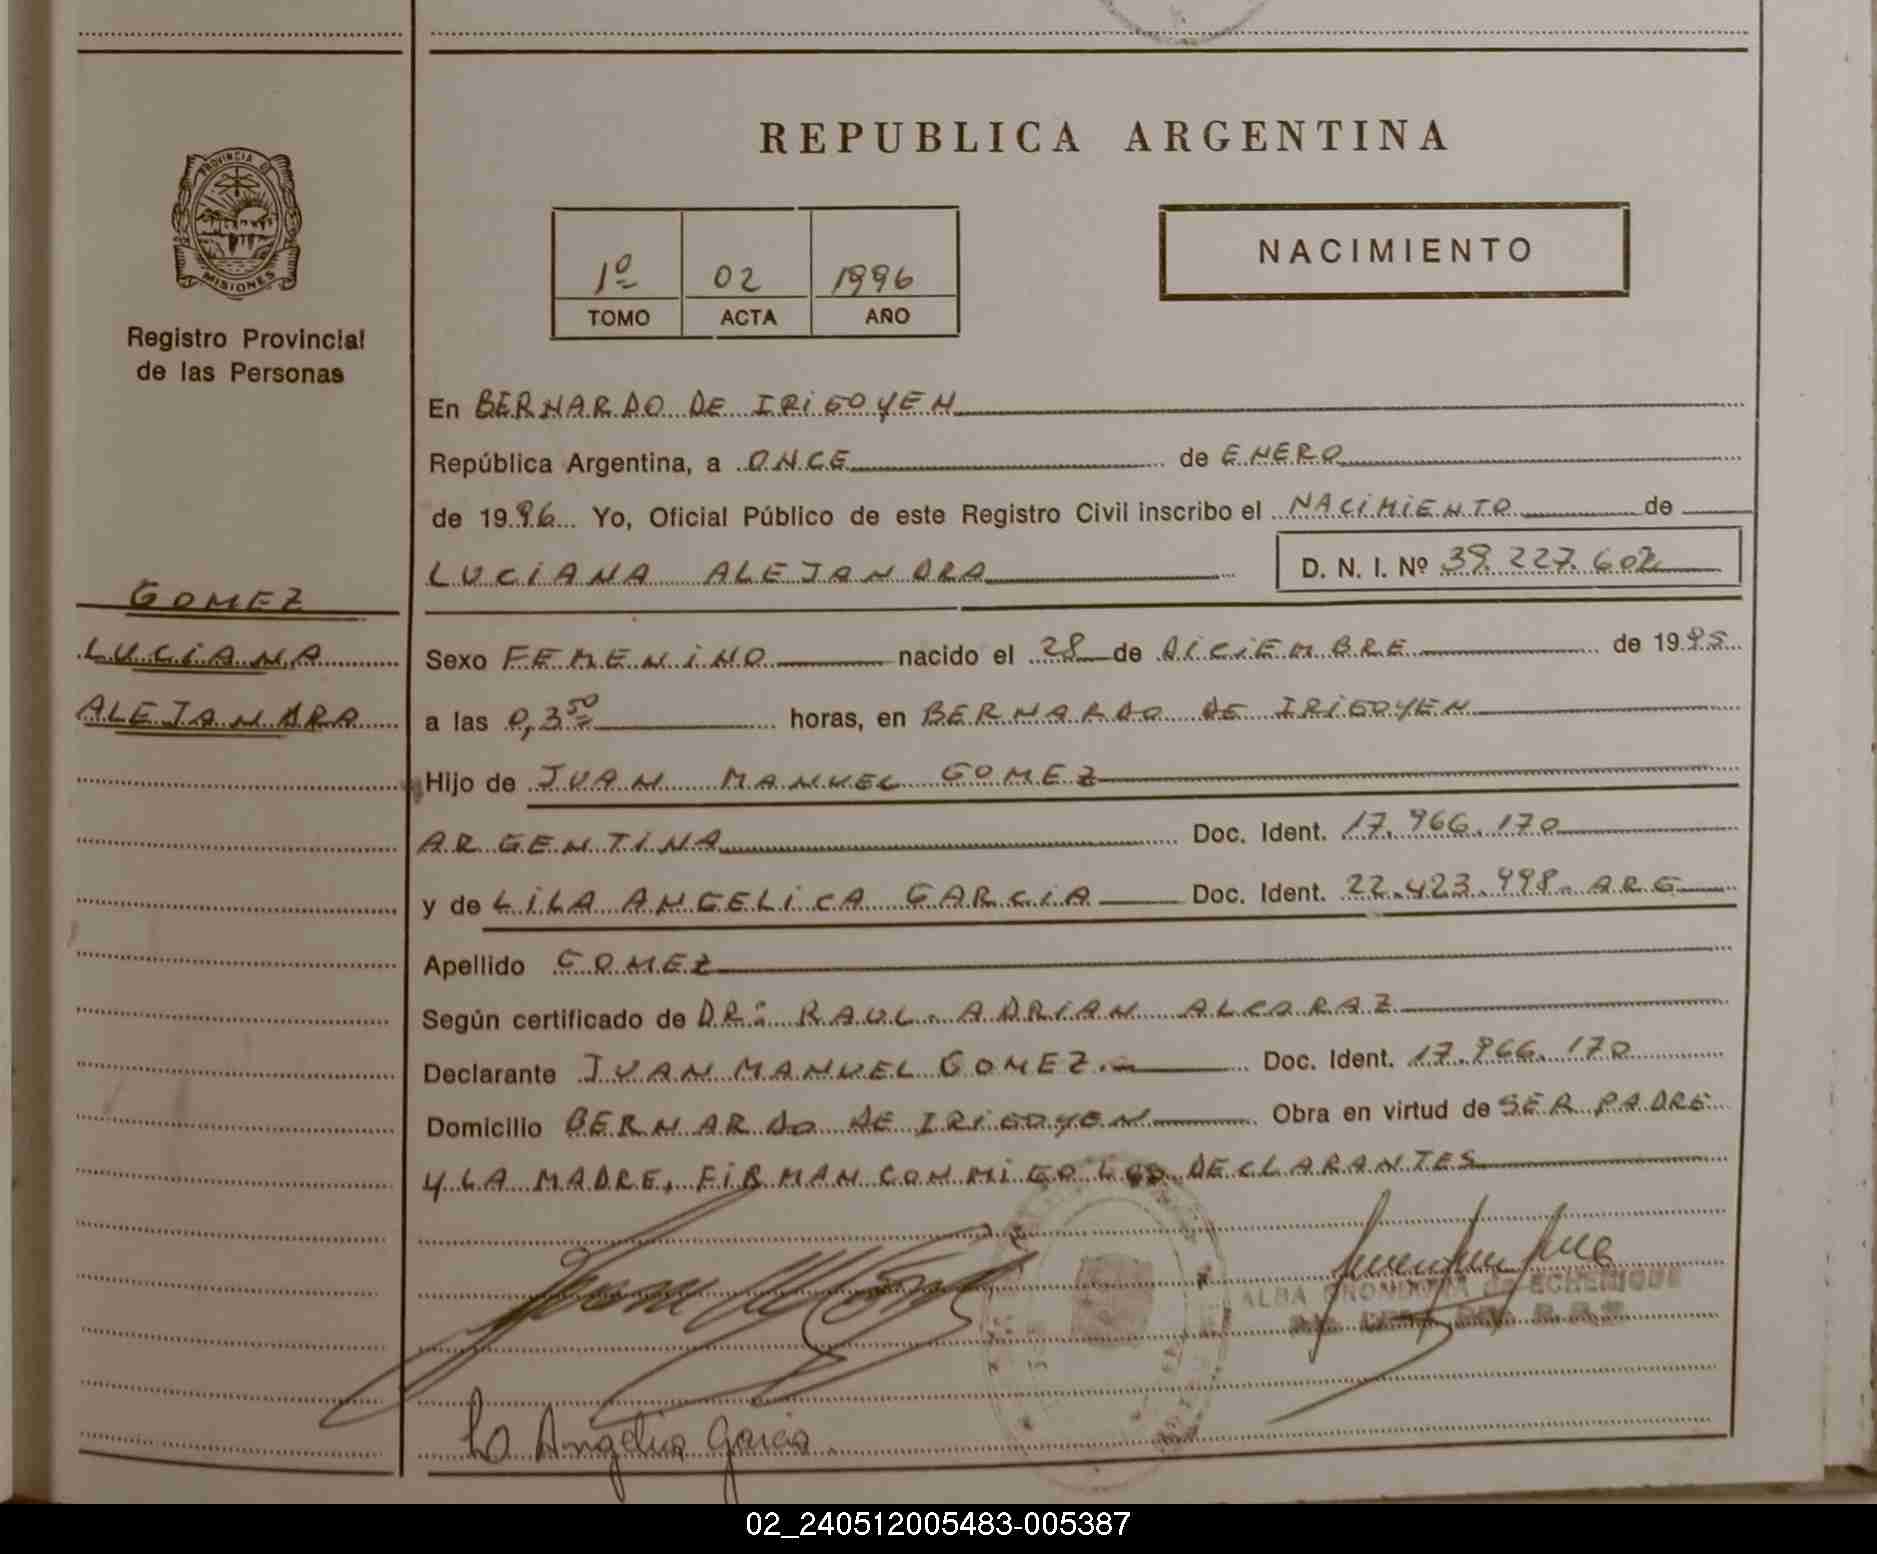 REPUBLICA ARGENTINA
PROVINCIA DE
MISIONES
Registro Provincial
de las Personas
1º 02 1996
TOMO ACTA AÑO
NACIMIENTO
En BERNARDO DE IRIGOYEN
República Argentina, a ONCE de ENERO
de 1996 Yo, Oficial Público de este Registro Civil inscribo el NACIMIENTO de
LUCIANA ALEJANDRA D. N. I. Nº 39.227.602
GOMEZ
LUCIANA
ALEJANDRA
Sexo FEMENINO nacido el 28 de DICIEMBRE de 1995
a las 0,3 50 horas, en BERNARDO DE IRIGOYEN
Hijo de JUAN MANUEL GOMEZ
ARGENTINA Doc. Ident. 17.966.170
y de LILA ANGELICA GARCIA Doc. Ident. 22.423.998. ARG
Apellido GOMEZ
Según certificado de DR: RAUL. ADRIAN ALCARAZ
Declarante JUAN MANUEL GOMEZ. Doc. Ident. 17.966.170
Domicilio BERNARDO DE IRIGOYEN Obra en virtud de SER PADRE
Y LA MADRE, FIRMAN CONMIGO LOS DECLARANTES
ALBA de ECHENIQUE
Angelica Garcia
02_240512005483-005387